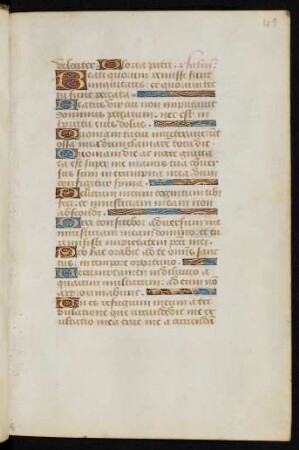 41
delenter. Gloria patri. psalmus
Beati quorum remisse sunt
iniquitates: et quorum tec
ta sunt peccata.
Beatus vir cui non imputavit
dominus peccatum: nec est in
spiritu eius dolus.
Quoniam tacui inveteraverunt
ossa mea: dum clamarem tota die.
Quoniam die ac nocte gravata
est super me manus tua: conver
sus sum in erumpna mea: dum
configitur spina.
Delictum meum cognitum tibi
feci: et iniusticiam meam non
abscondi.
Dixi confitebor adversum me
iniusticiam meam domino: et tu
remisisti impietatem peccati mei.
Pro hac orabit ad te omnis sanc
tus: in tempore oportuno.
Verumptamen in diluvio a
quarum multarum: ad eum non
approximabunt.
Tu es refugium meum a tri
bulatione que circumdedit me: ex
ultatio mea erue me a circunda